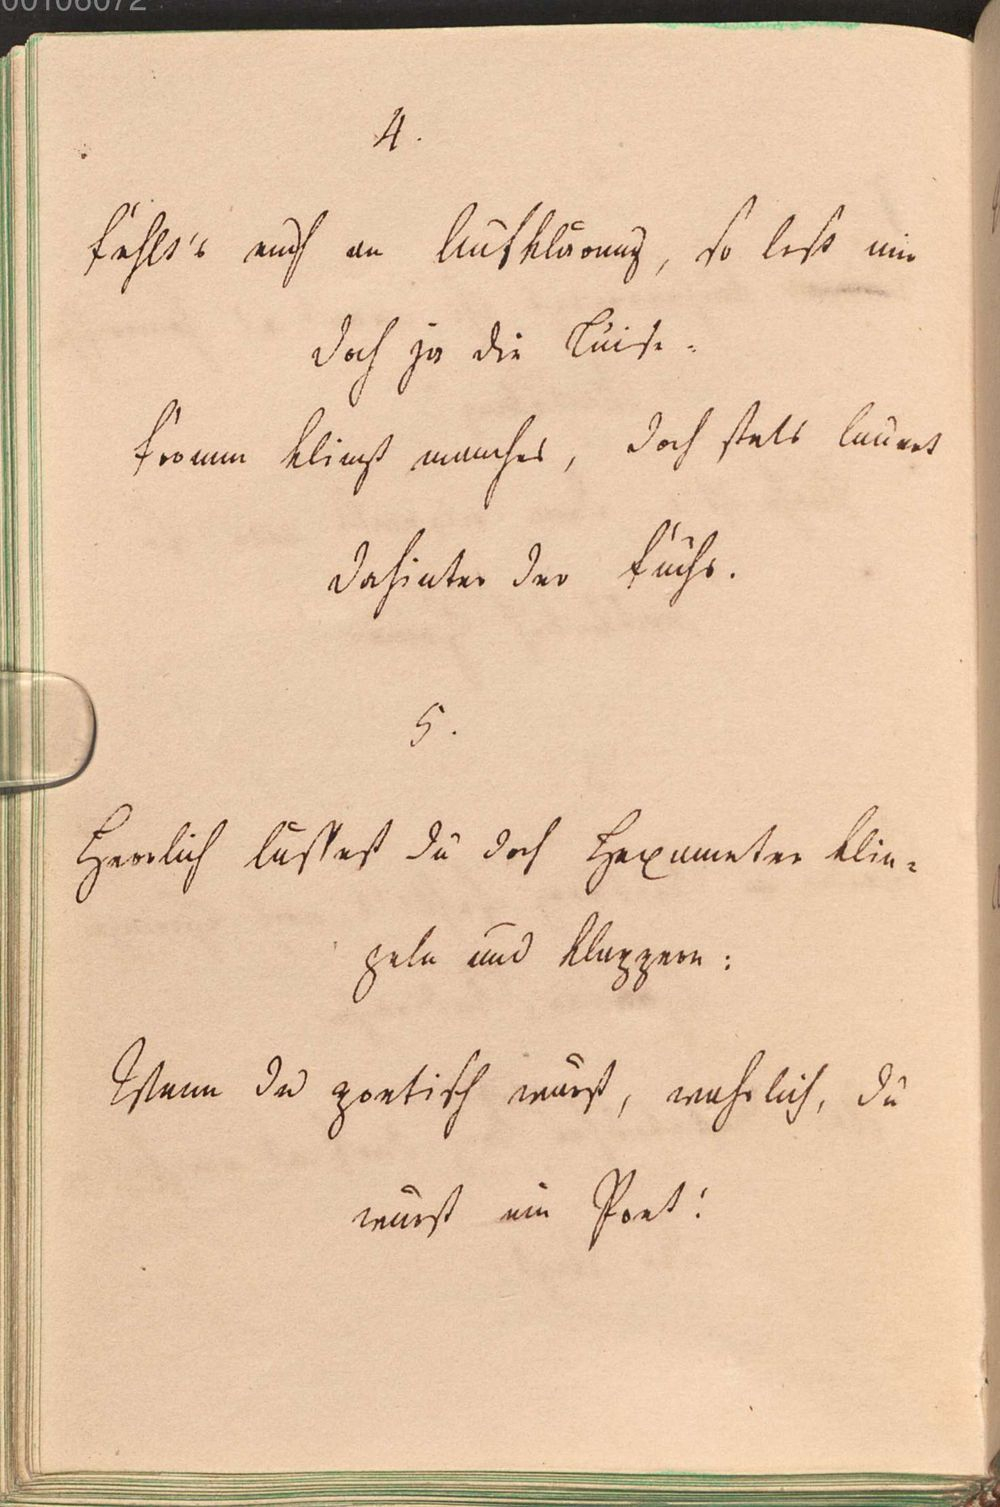 00106072
4.
Fehlt's euch an Aufklärung, so lest mir
doch ja die Luise.
Fromm klingt manches, doch stets lauert
dahinter der Fuchs.
5.
Herrlich lässest du doch Hexameter klin-
geln und klappern:
Wenn du poetisch wärst, wahrlich, du
wärst ein Poet!